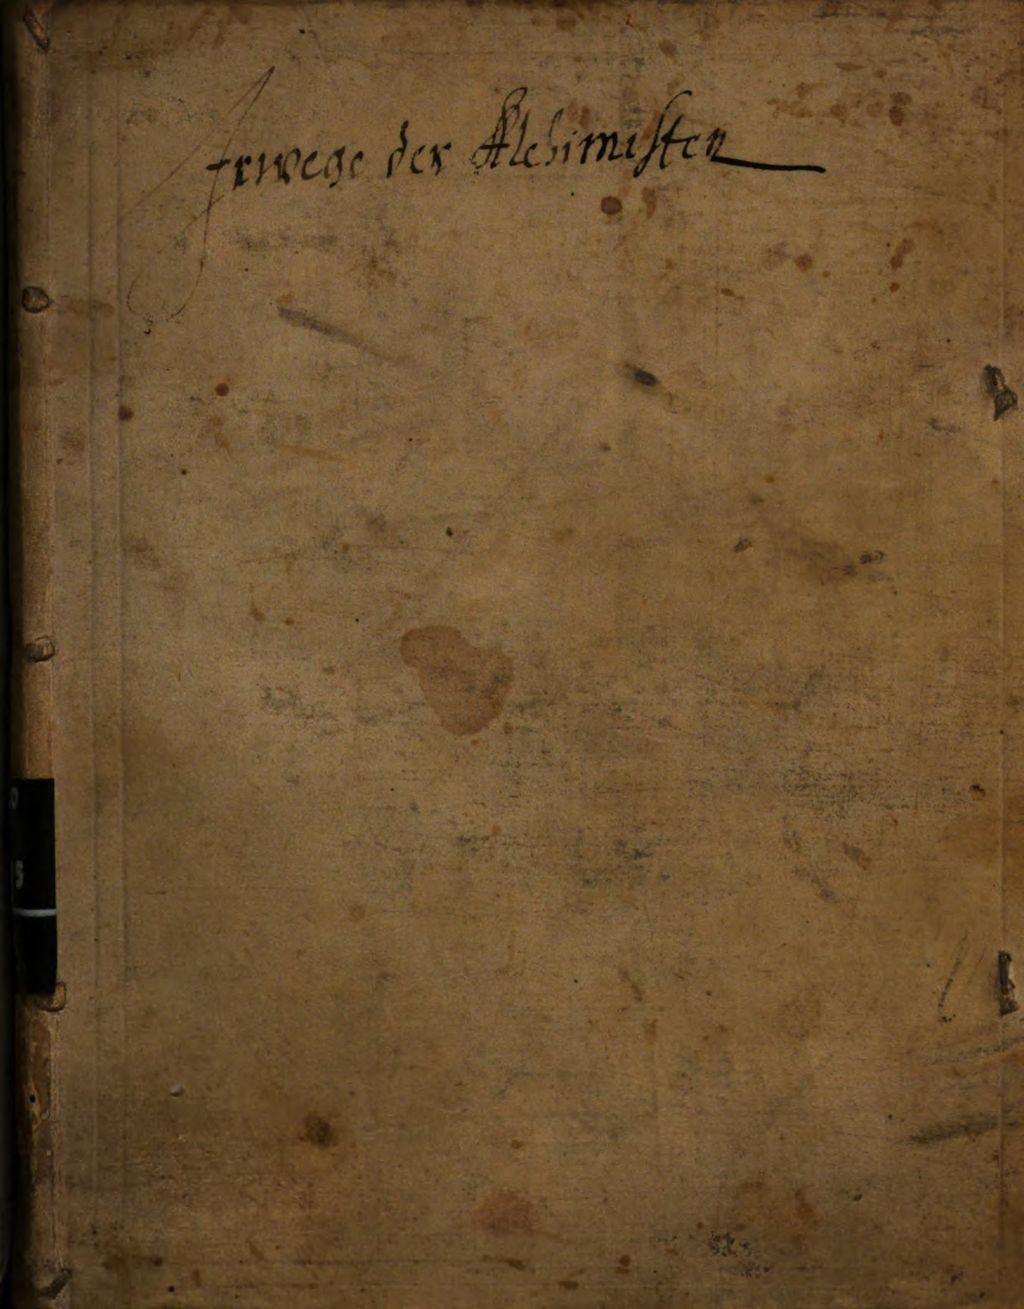 Irwege der Alchimisten
S